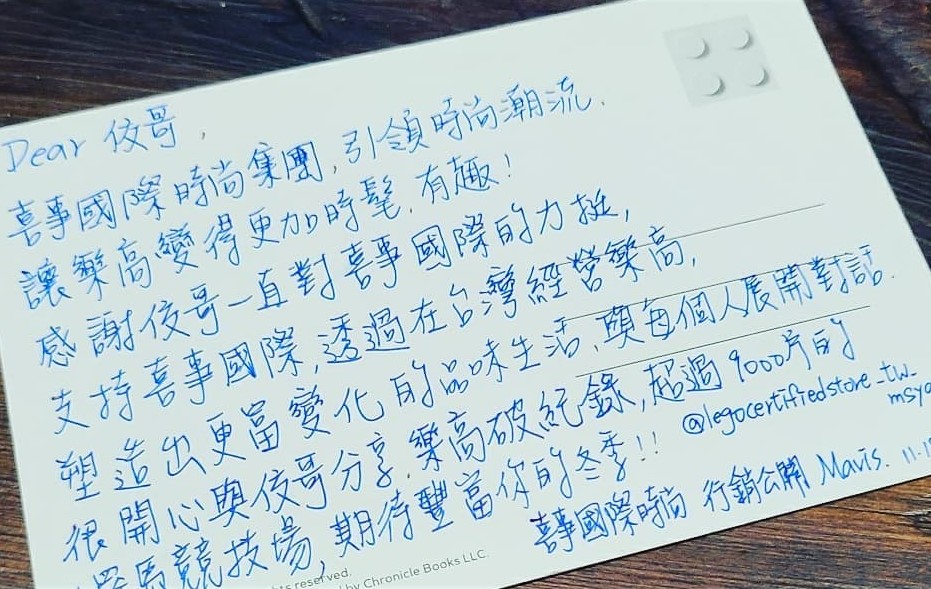 Dear 佼哥,
喜事國際時尚集團,引領時尚潮流.
讓樂高變得更加時髦.有趣!
感謝佼哥一直對喜事國際的力挺,
支持喜事國際,透過在台灣經營樂高,
塑造出更富變化的品味生活.與每個人展開對話.
很開心與佼哥分享.樂高破紀錄,超過9000片的
羅馬競技場,期待豐富你的冬季!!
@legocertifiedstore_tw_
喜事國際時尚 行銷公關 Mavis.
reserved.
by Chronicle Books LLC.